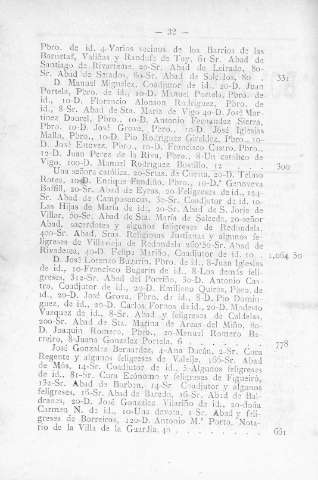 — 32 —
Pbro. de id. 4-Varios vecinos de los Barrios de las
Bornetas, Valiñas y Randufe de Tuy, 61-Sr. Abad de
Santiago de Rivarteme, 20-Sr. Abad de Leirado, 80-
Sr. Abad de Setados, 80-Sr. Abad de Salcidos, 80 . 331
D. Manuel Miguelez, Coadjutor de id., 20-D. Juan
Portela, Pbro. de id., 10-D. Manuel Portela, Pbro. de
id., 10-D. Florencio Alonson Rodríguez, Pbro. de
id., 8-Sr. Abad de Sta. María de Vigo 40-D. José Mar-
tinez Dourel, Pbro., 10-D. Antonio Fernandez Sierra,
Pbro. 10-D. José Grova, Pbro., 10-D. José Iglesias
Malla, Pbro., 10-D. Pio Rodriguez Giraldez, Pbro., 10-
D. José Estevez, Pbro., 10-D. Francisco Castro, Pbro.,
12-D. Juan Perez de la Riva, Pbro., 8-Un católico de
Vigo, 100-D. Manuel Rodriguez Bastillo, 12 . . . 300
Una señora católica, 20-Srtas. de Cuenta, 20-D. Telmo
Rotea, 10-D. Enrique Fandiño, Pbro., 10-D.ª Genoveva
Boffill, 20-Sr. Abad de Eyras, 20-Feligreses de id., 124-
Sr. Abad de Camposancos, 30-Sr. Coadjutor de id. 10-
Las Hijas de María de id., 20-Sr. Abad de S. Jorje de
Villar, 60-Sr. Abad de Sta. María de Salceda, 20-señor
Abad, sacerdotes y algunos feligreses de Redondela,
400-Sr. Abad, Sras. Religiosas Justinas y algunos fe-
ligreses de Villavieja de Redondela 260'50-Sr. Abad de
Rivadetea, 40-D. Felipe Mariño, Coadjutor de id. 10 . 1,064 50
D. José Lorenzo Bazarin, Pbro. de id., 8-Juan Iglesias
de id., 10-Francisco Bugarin de id., 8-Los demás feli-
greses, 312-Sr. Abad del Porriño, 50-D. Antonio Cas-
tro, Coadjutor de id., 20-D. Emiliano Quiroz, Pbro. de
id., 20-D. José Grova, Pbro. de id., 8-D. Pio Domin-
guez, de id., 20-D. Carlos Fortes de id., 20-D. Modesto
Vazquez de id., 8-Sr. Abad y feligreses de Caldelas,
200-Sr. Abad de Sta. Marina de Areas del Miño, 80-
D. Joaquin Romero, Pbro., 20-Manuel Romero Be-
rreiro, 8-Juana Gonzalez Portela, 6 . . . . 778
José Gonzalez Bernardez, 4-Ana Durán, 2-Sr. Cura
Regente y algunos feligreses de Valeije, 166-Sr. Abad
de Mós, 14-Sr. Coadjutor de id., 5-Algunos feligreses
de id., 81-Sr. Cura Ecónomo y feligreses de Figueiró,
132-Sr. Abad de Burbon, 14-Sr. Coadjutor y algunos
feligreses, 16-Sr. Abad de Barada, 16-Sr. Abad de Bal-
dranes, 20-D. José Gonzalez Vilariño de id., 20-doña
Carmen N. de id., 10-Una devota, 1-Sr. Abad y feli-
greses de Borreiros, 120-D. Antonio M.ª Porto, Nota-
rio de la Villa de la Guardia, 40 . . . . . 661